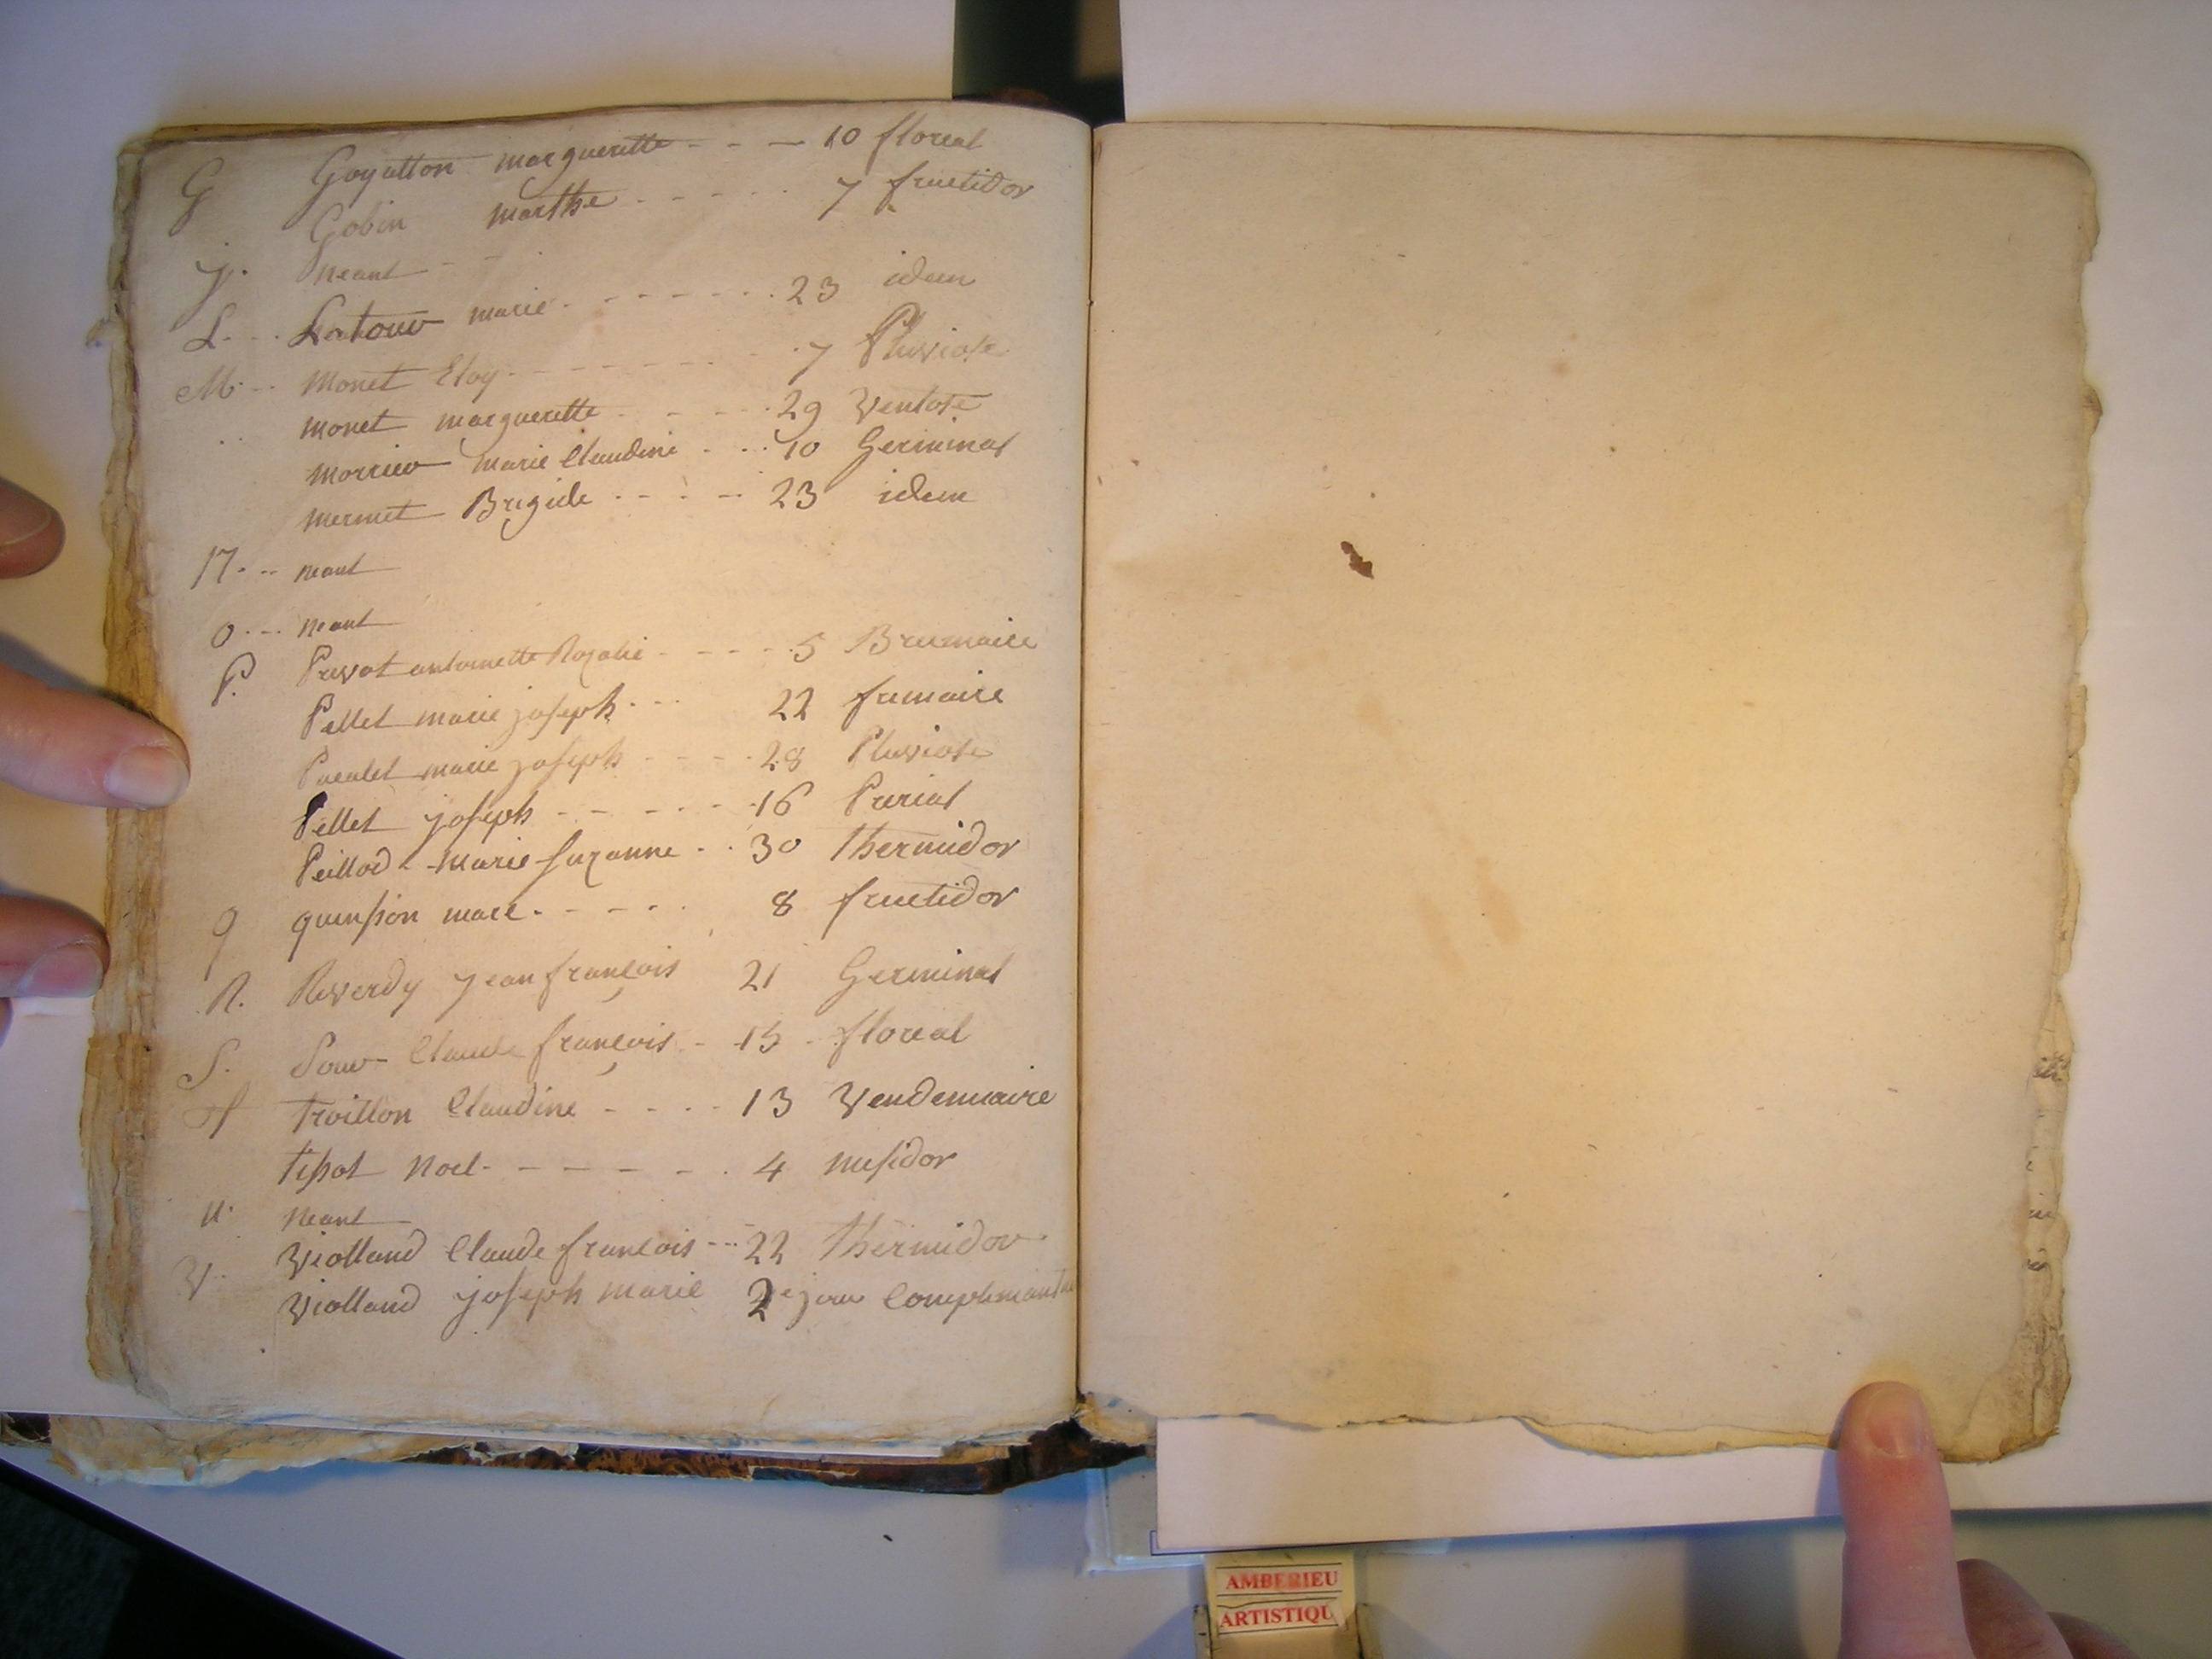 G Goyatton margueritte - - - 10 floreal
Gobin marthe - - - - - 7 fructidor
J. neant - -
L. - - Latour marie - - - - - - - 23 idem
M. - - Monet Eloy - - - - - - - 7 Pluviose
monet margueritte - - - - 29 Ventose
morrier marie Claudine - - - 10 Germinal
mermet Brigide - - - - 23 idem
N. - - neant
O. - - neant
P. Prevot antoinette Rozalie - - - - 5 Brumaire
Pellet marie joseph - - - 22 frimaire
marie joseph - - - - 28 Pluviose
Pellet joseph - - - - - 16 Prerial
Peillod marie Suzanne - - 30 thermidor
q quinssion marc - - - - - 8 fructidor
R. Reverdy jean françois 21 Germinal
S. Claude françois - 15 - floreal
T Troillon Claudine - - - - 13 Vendemiaire
tissot Noel - - - - - - 4 messidor
U. Neant
V. Violland Claude françois - - - 22 thermidor
Violland joseph marie 2e jour
AMBERIEU
ARTISTIQU